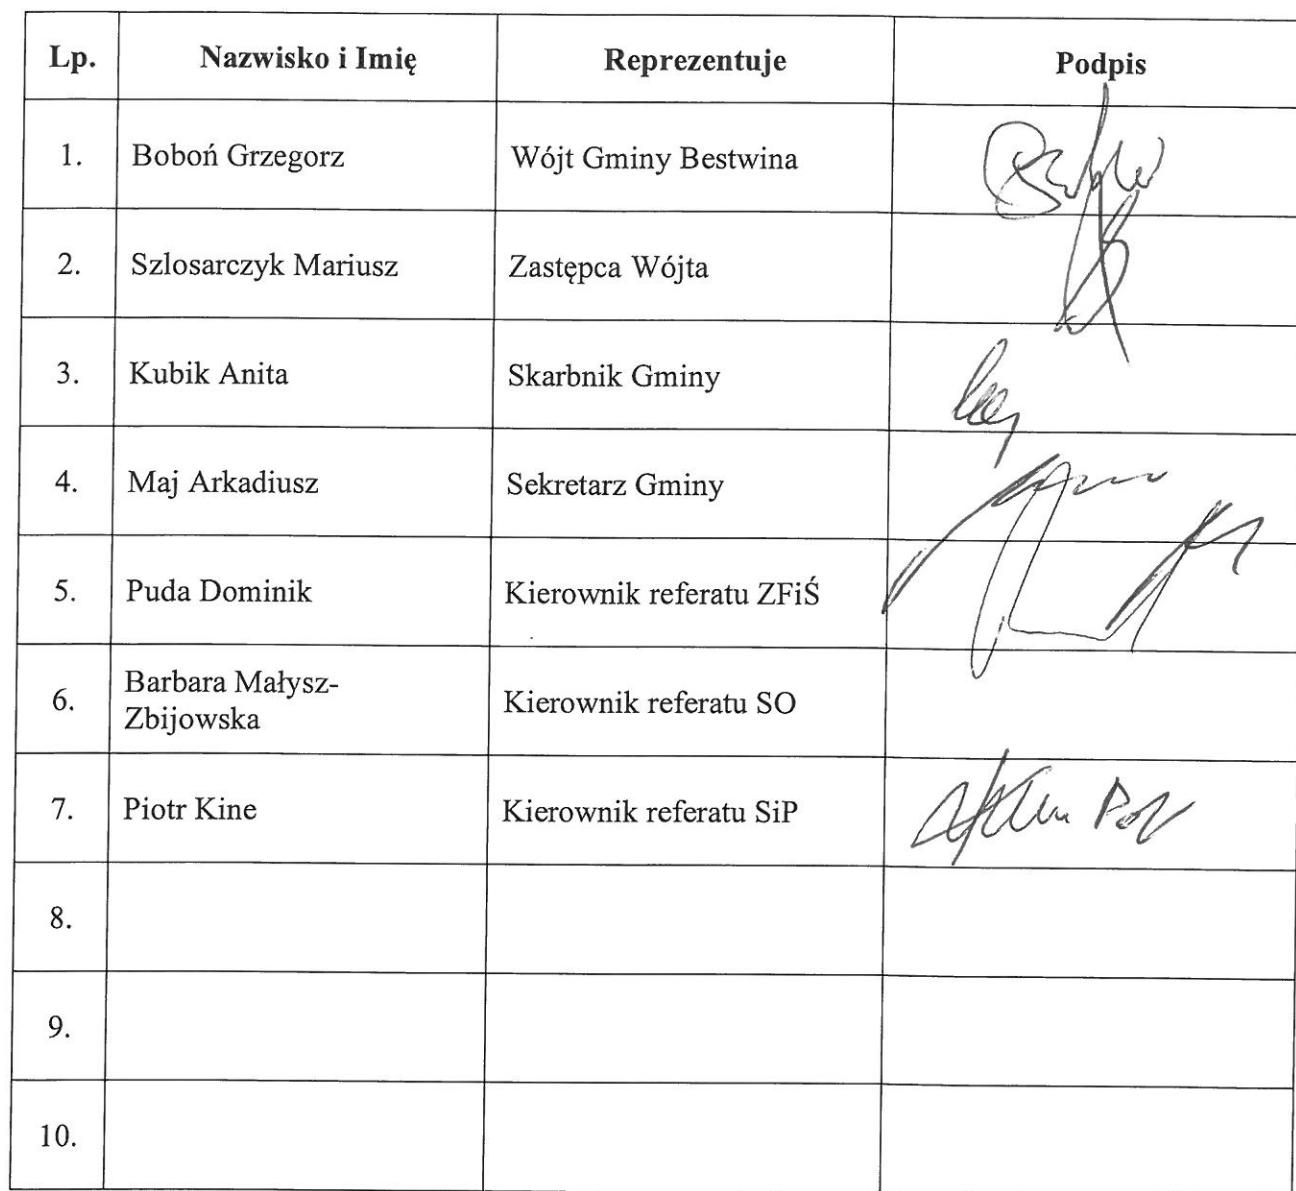 Lp. Nazwisko i Imię Reprezentuje Podpis
1. Boboń Grzegorz Wójt Gminy Bestwina
2. Szlosarczyk Mariusz Zastępca Wójta
3. Kubik Anita Skarbnik Gminy
4. Maj Arkadiusz Sekretarz Gminy
5. Puda Dominik Kierownik referatu ZFiŚ
6. Barbara Małysz-
Zbijowska Kierownik referatu SO
7. Piotr Kine Kierownik referatu SiP
8.
9.
10.